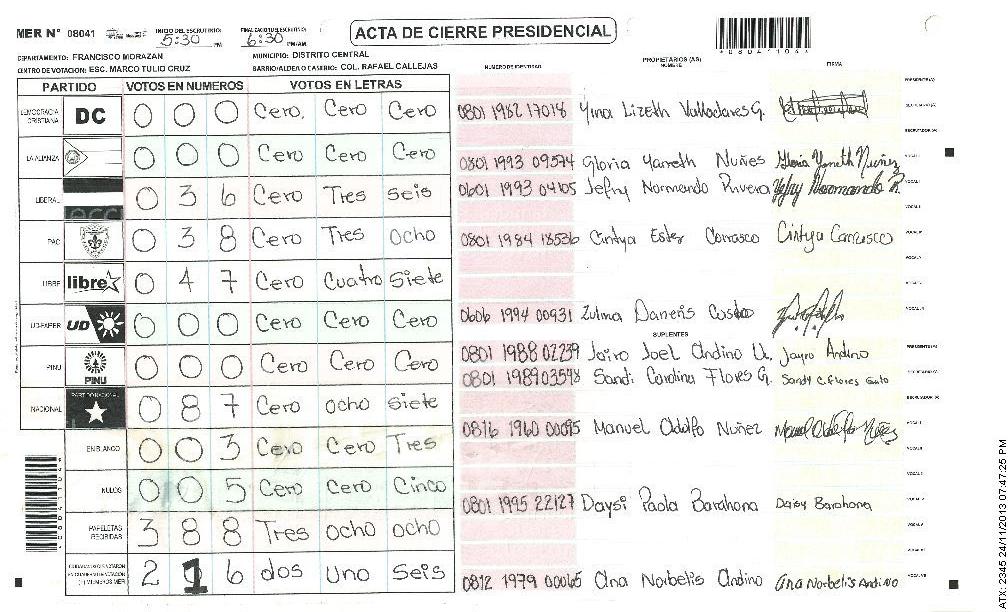 MER N° 08041
INICIO DEL ESCRUTINIO: 5:30 PM
FINALIZACION DEL ESCRUTINIO: 6:30 PM/AM
ACTA DE CIERRE PRESIDENCIAL
DEPARTAMENTO: FRANCISCO MORAZAN
MUNICIPIO: DISTRITO CENTRAL
CENTRO DE VOTACION: ESC. MARCO TULIO CRUZ
BARRIO/ALDEA O CASERIO: COL. RAFAEL CALLEJAS
PARTIDO VOTOS EN NUMEROS VOTOS EN LETRAS
DEMOCRACIA CRISTIANA DC 0 0 0 Cero, Cero Cero
LA ALIANZA 0 0 0 Cero Cero Cero
LIBERAL 0 3 6 Cero Tres seis
PAC 0 3 8 Cero Tres ocho
LIBRE libre 0 4 7 Cero Cuatro Siete
UD-FAPER UD 0 0 0 Cero Cero Cero
PINU PINU 0 0 0 Cero Cero Cero
NACIONAL PARTIDO NACIONAL 0 8 7 Cero ocho siete
EN BLANCO 0 0 3 Cero Cero Tres
NULOS 0 0 5 Cero Cero Cinco
PAPELETAS RECIBIDAS 3 8 8 Tres ocho ocho
2 1 6 dos Uno Seis
NUMERO DE IDENTIDAD PROPIETARIOS (AS) NOMBRE FIRMA
PRESIDENTE(A)
0801 1982 17018 Yina Lizeth Valladares G. SECRETARIO(A)
ESCRUTADOR (A)
0801 1993 09574 Gloria Yaneth Nuñes Gloria Yaneth Nuñez VOCAL I
0601 1993 04105 Jefry Normando Rivera Jefry Normando R. VOCAL II
0801 1984 18536 Cintya Ester Carrasco Cintya Carrasco
0606 1994 00931 Zulma Daneris
SUPLENTES
0801 1988 02239 Jairo Joel Andino U. Jayro Andino PRESIDENTE(A)
0801 1989 03598 Sandi Carolina Flores G. Sandy C. Flores SECRETARIO(A)
ESCRUTADOR (A)
0816 1960 00095 Manuel Adolfo Nuñez Manuel Adolfo Nuñez VOCAL I
0801 1995 22127 Daysi Paola Barahona Daisy Barahona
0812 1979 00065 Ana Norbelis Andino Ana Norbelis Andino
ATX: 2345 24/11/2013 07:47:25 PM